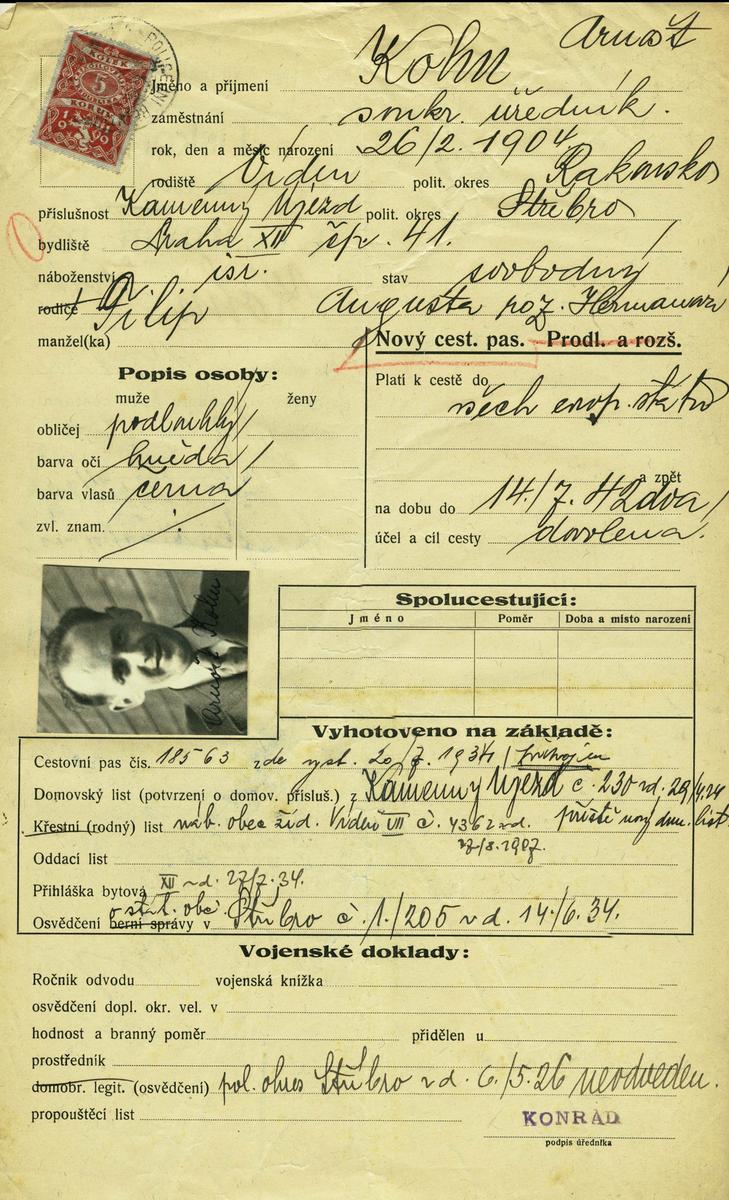 Arnošt
Jméno a příjmení Kohn
zaměstnání soukr. úředník.
rok, den a měsíc národění 26/2. 1904
rodiště Vídeň polit. okres Rakousko
příslušnost Kamenný Újezd polit. okres Stříbro
bydliště Praha XII čp. 41.
náboženství isr. stav svobodný
rodiče Filip Augusta roz. Hermanová
manžel(ka)
Nový cest. pas. Prodl. a rozš.
Popis osoby:
muže ženy
obličej podlouhlý
barva očí hnědá
barva vlasů černá
zvl. znam. /.
Platí k cestě do
všech evrop. států
a zpět
na dobu do 14/7. 42 dva
účel a cíl cesty dovolená.
Arnošt Kohn
Spolucestující:
Jméno Poměr Doba a místo narození
Vyhotoveno na základě:
Cestovní pas čís. 18563 zde vyst. 20/7. 1934
Domovský list (potvrzení o domov. přísluš.) z Kamenný Újezd č. 230 z d. 29/4 24
příště nový dom. list
Křestní (rodný) list náb. obec žid. Vídeň VII č. 4362 z d.
Oddací list
Přihláška bytová XII z d. 27/7. 34.
o stát. obč.
Osvědčení berní správy v Stříbro č. 1./205 z d. 14/6. 34.
Vojenské doklady:
Ročník odvodu vojenská knížka
osvědčení dopl. okr. vel. v
hodnost a branný poměr přidělen u
prostředník
domobr. legit. (osvědčení) pol. okres Stříbro z d. 6./5. 26 neodveden.
propouštěcí list
KONRÁD
podpis úředníka